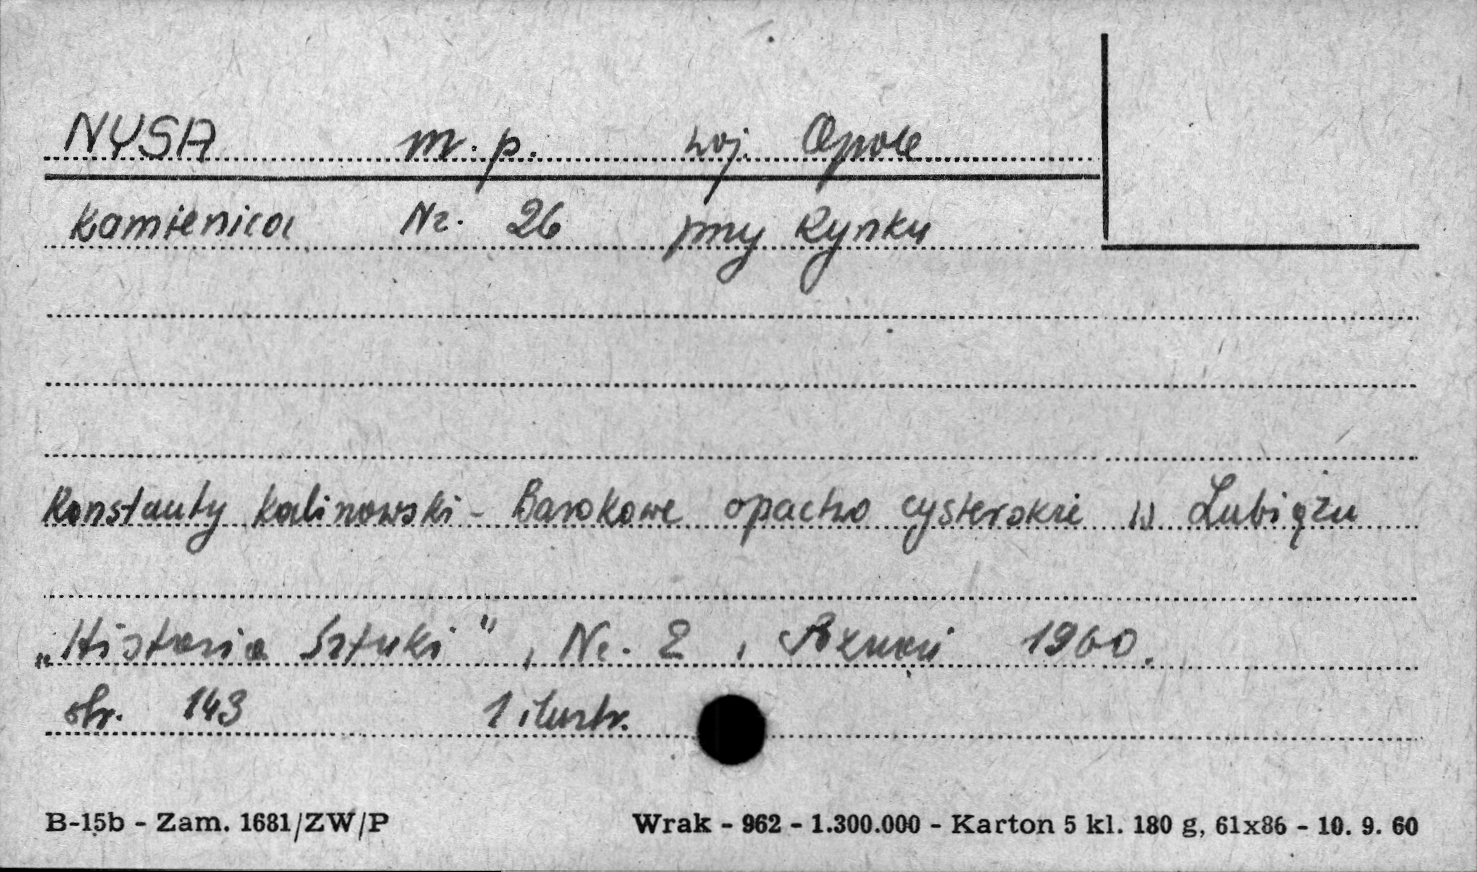 NYSA m. p. woj. Opole
Kamienica Nr. 26 przy Rynku
Konstanty Kalinowski - Barokowe opactwo cysterskie w Lubiążu
„Historia Sztuki", Nr. 2, Poznań 1960.
str. 143 1 ilustr.
B-15b - Zam. 1681/ZW/P Wrak - 962 - 1.300.000 - Karton 5 kl. 180 g, 61x86 - 10. 9. 60